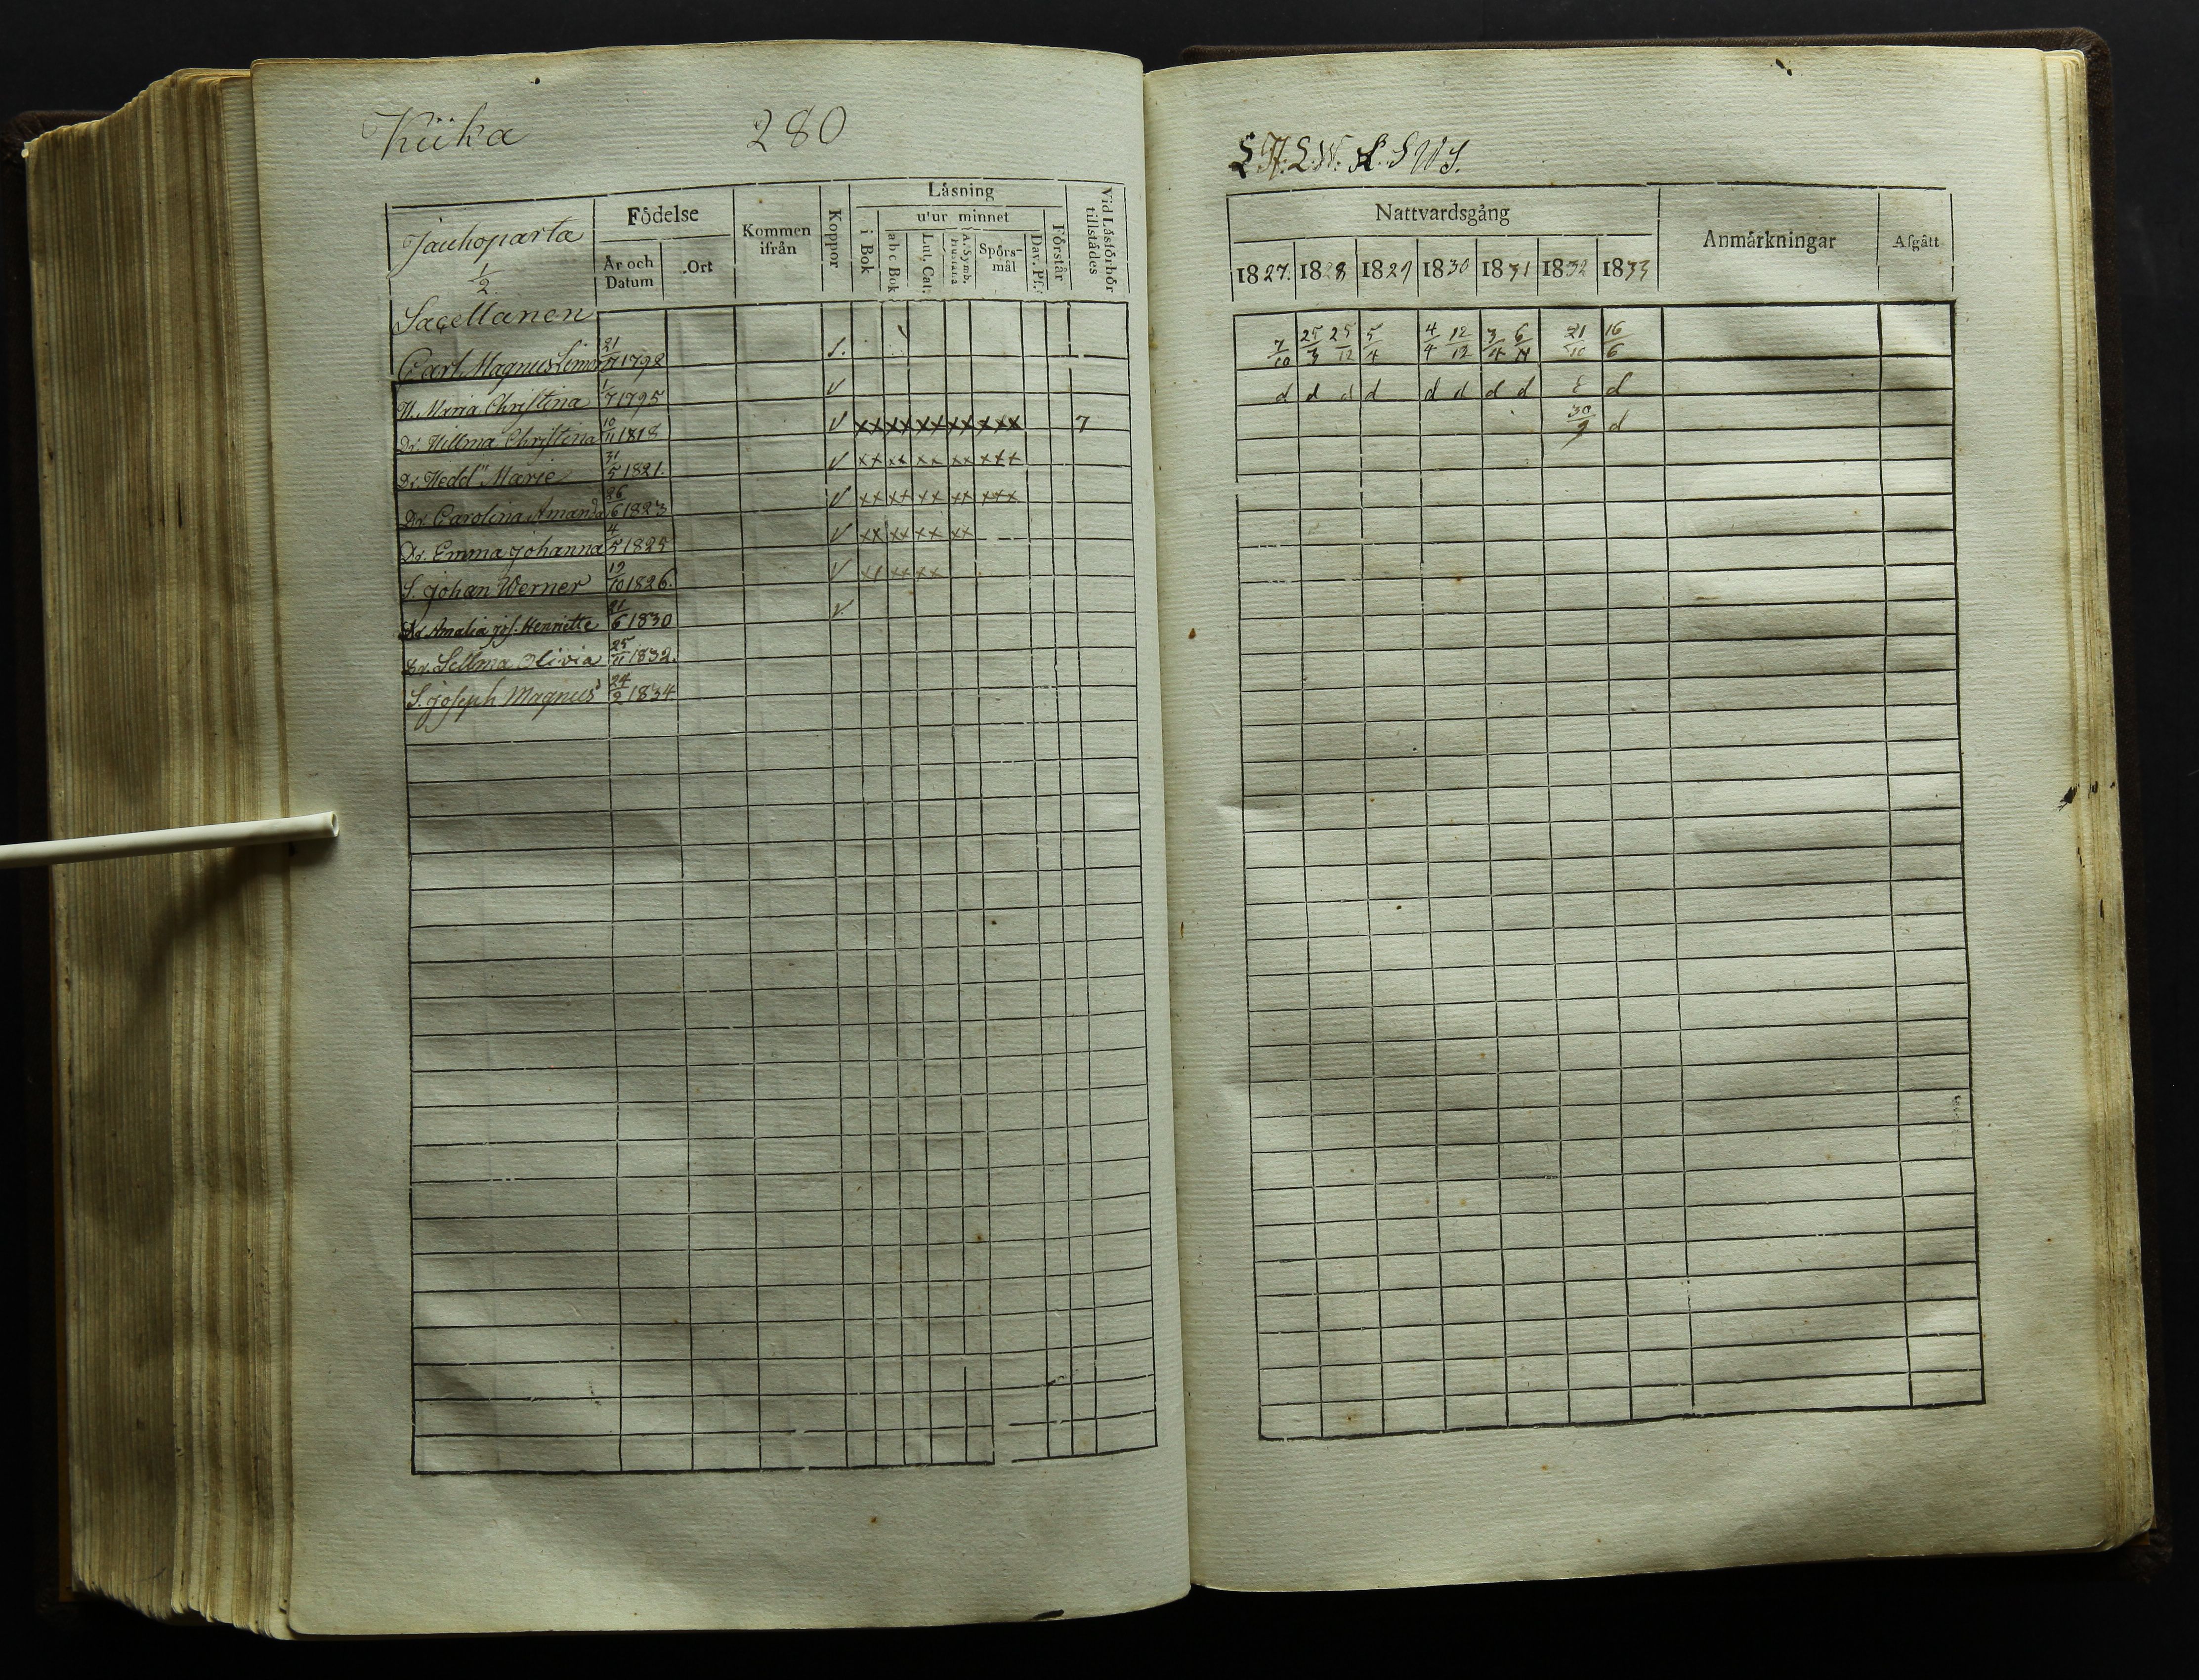 Kiika 280
Jauhoparta
1/2
Födelse
År och Datum
Ort
Kommen ifrån
Koppor
Läsning
i Bok
utur minnet
a b c Bok
Lut. Cat.
A. Symb.
Spörs-mål
Dav. Ps.
Förstår
Vid Läsförhör tillstådes
Sacellanen
Carl Magnus 21/7 1792 S.
H. Maria Christina 1/7 1795 v
Dr. Willma Christina 10/11 1818 v xx xx xx xx xxx 7
Dr. Hedd" Marie 31/5 1821. v xx xx xx xx xxx
Dr. Carolina Amanda 26/6 1823 v xx xx xx xx xxx
Dr. Emma Johanna 4/5 1825 v xx xx xx xx
S. Johan Werner 19/10 1826. v xx xx xx
Dr Amalia Jos. Henriette 21/6 1830 v.
Dr. Sellma Olivia 25/11 1832.
S. Joseph Magnus 24/2 1834
Nattvardsgång
Anmärkningar
Afgått
1827. 1828 1829 1830 1831 1832 1833
7/10 25/3 25/12 5/4 4/4 12/12 3/4 6/11 21/10 16/6
d d d d d d d d E d
30/9 d